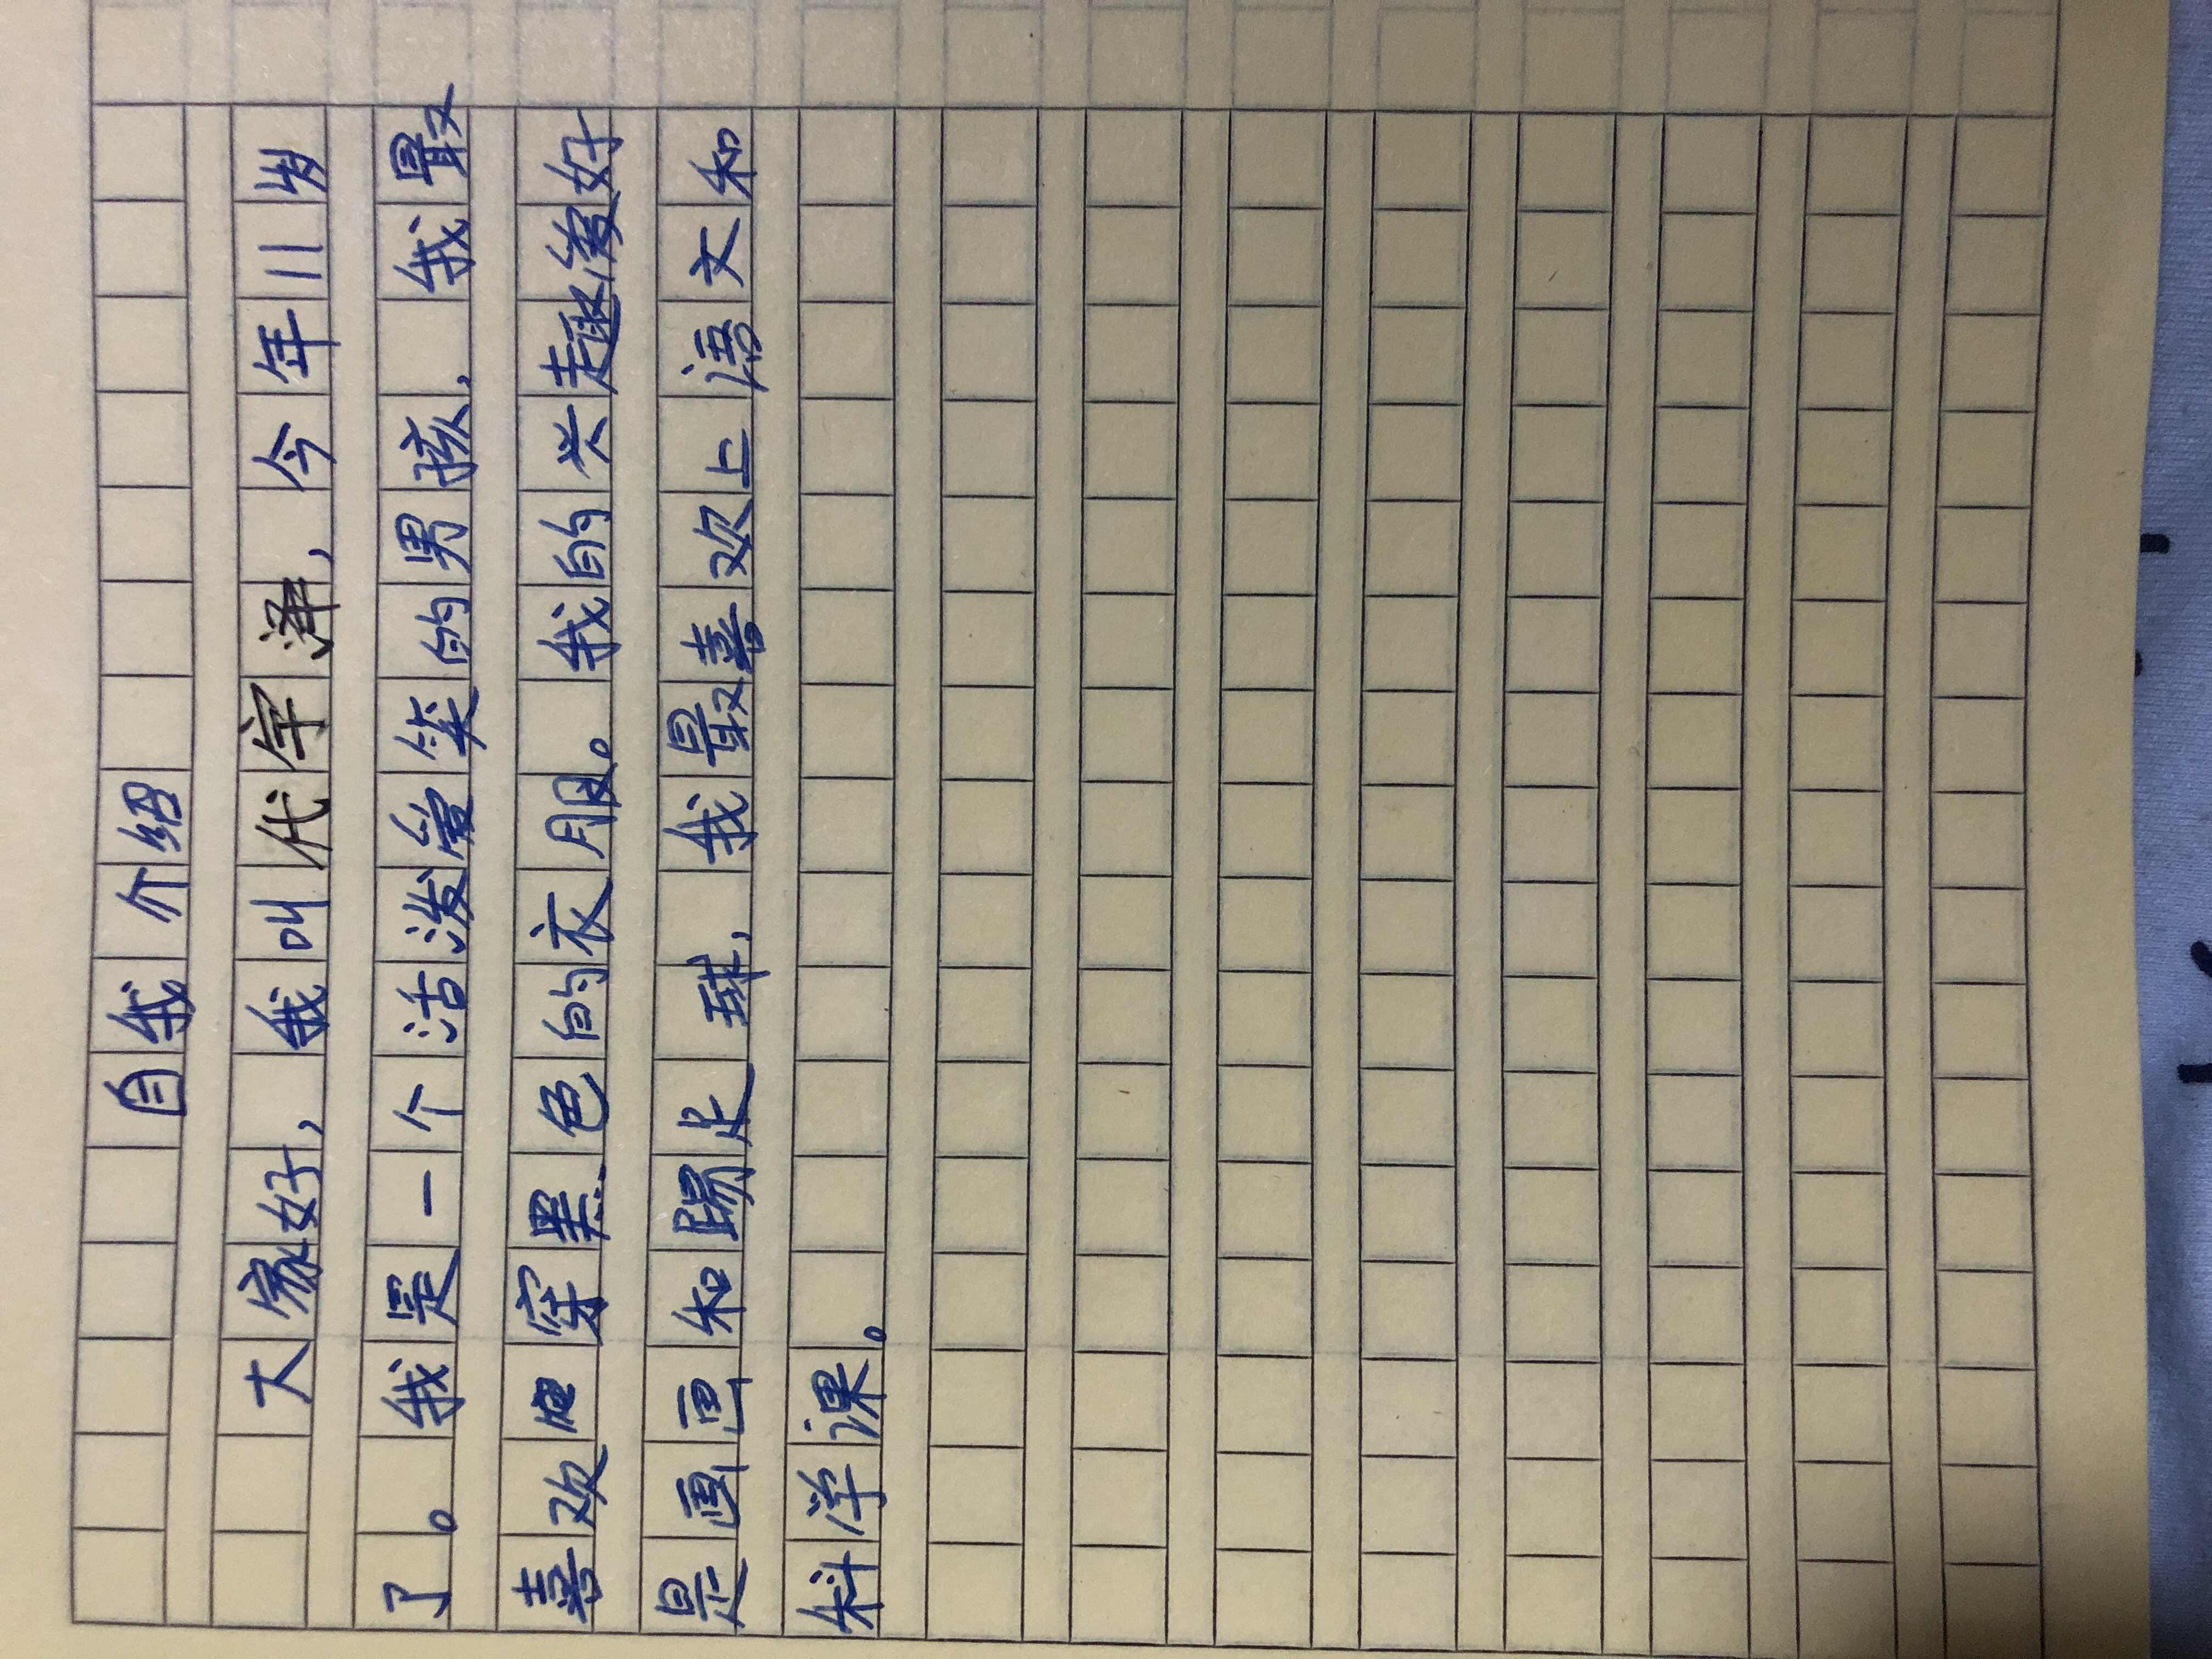 自我介绍
大家好，我叫代宇泽，今年11岁
了。我是一个活泼爱笑的男孩，我最
喜欢穿黑色的衣服。我的兴趣爱好
是画画和踢足球，我最喜欢上语文和
科学课。